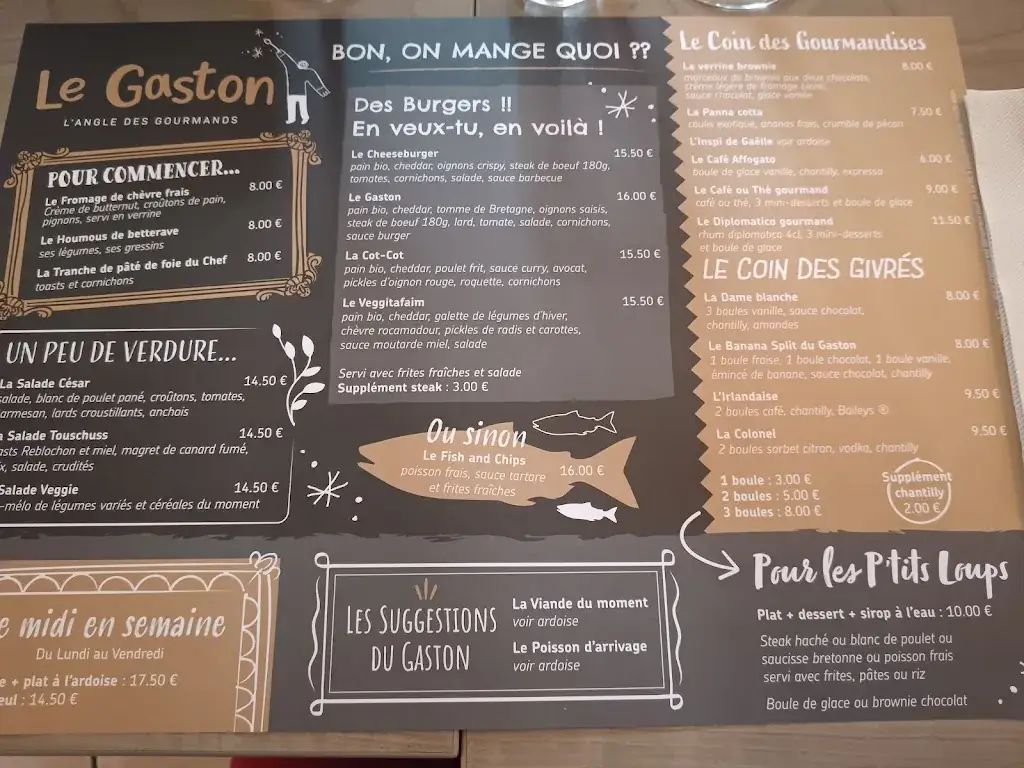 Le Gaston
L'ANGLE DES GOURMANDS
POUR COMMENCER...
Le Fromage de chèvre frais 8.00 €
Crème de butternut, croûtons de pain,
pignons, servi en verrine
Le Houmous de betterave 8.00 €
ses légumes, ses gressins
La Tranche de pâté de foie du Chef 8.00 €
toasts et cornichons
UN PEU DE VERDURE...
La Salade César 14.50 €
salade, blanc de poulet pané, croûtons, tomates,
parmesan, lards croustillants, anchois
La Salade Touschuss 14.50 €
toasts Reblochon et miel, magret de canard fumé,
salade, crudités
Salade Veggie 14.50 €
-mélo de légumes variés et céréales du moment
midi en semaine
Du Lundi au Vendredi
+ plat à l'ardoise : 17.50 €
: 14.50 €
BON, ON MANGE QUOI ??
Des Burgers !!
En veux-tu, en voilà !
Le Cheeseburger 15.50 €
pain bio, cheddar, oignons crispy, steak de boeuf 180g,
tomates, cornichons, salade, sauce barbecue
Le Gaston 16.00 €
pain bio, cheddar, tomme de Bretagne, oignons saisis,
steak de boeuf 180g, lard, tomate, salade, cornichons,
sauce burger
La Cot-Cot 15.50 €
pain bio, cheddar, poulet frit, sauce curry, avocat,
pickles d'oignon rouge, roquette, cornichons
Le Veggitafaim 15.50 €
pain bio, cheddar, galette de légumes d'hiver,
chèvre rocamadour, pickles de radis et carottes,
sauce moutarde miel, salade
Servi avec frites fraîches et salade
Supplément steak : 3.00 €
Ou sinon
Le Fish and Chips 16.00 €
poisson frais, sauce tartare
et frites fraîches
LES SUGGESTIONS
DU GASTON
La Viande du moment
voir ardoise
Le Poisson d'arrivage
voir ardoise
Le Coin des Gourmandises
La verrine brownie 8.00 €
morceaux de brownie aux deux chocolats,
crème légère de fromage
sauce chocolat, glace vanille
La Panna cotta 7.50 €
coulis exotique, ananas frais, crumble de pécan
L'Inspi de Gaëlle voir ardoise
Le Café Affogato 6.00 €
boule de glace vanille, chantilly, expresso
Le Café ou Thé gourmand 9.00 €
café ou thé, 3 mini-desserts et boule de glace
Le Diplomatico gourmand 11.50 €
rhum diplomatico 4cl, 3 mini-desserts
et boule de glace
LE COIN DES GIVRÉS
La Dame blanche 8.00 €
3 boules vanille, sauce chocolat,
chantilly, amandes
Le Banana Split du Gaston 8.00 €
1 boule fraise, 1 boule chocolat, 1 boule vanille,
émincé de banane, sauce chocolat, chantilly
L'Irlandaise 9.50 €
2 boules café, chantilly, Baileys ®
La Colonel 9.50 €
2 boules sorbet citron, vodka, chantilly
1 boule : 3.00 €
2 boules : 5.00 €
3 boules : 8.00 €
Supplément
chantilly
2.00 €
Pour les P'tits Loups
Plat + dessert + sirop à l'eau : 10.00 €
Steak haché ou blanc de poulet ou
saucisse bretonne ou poisson frais
servi avec frites, pâtes ou riz
Boule de glace ou brownie chocolat